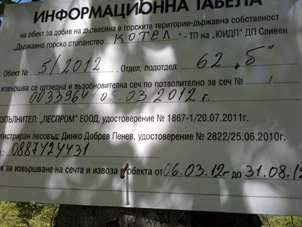 ИНФОРМАЦИОННА ТАБЕЛА
на обект за добив на дървесина в горските територии-държавна собственост
"Държавно горско стопанство КОТЕЛ - ТП на „ЮИДП" ДП Сливен
Обект № 5/2012, Отдел, подотдел: 62 „б"
извършва се отгледна и възобновителна сеч по позволително за сеч № /
0033964 03.2012 г.
ИЗПЪЛНИТЕЛ: „ЛЕСПРОМ" ЕООД, удостоверение № 1867-1/20.07.2011г.
гистриран лесовъд: Динко Добрев Пенев, удостоверение № 2822/25.06.2010г.
: 0887424431
к за извършване на сечта и извоза в обекта от 06.03.12г до 31.08.12